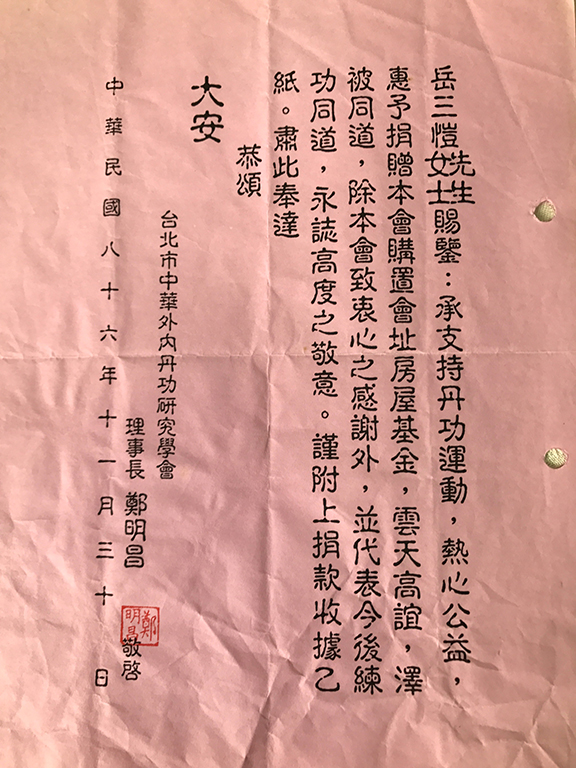 岳三愷先生女士賜鑒：承支持丹功運動，熱心公益，
惠予捐贈本會購置會址房屋基金，雲天高誼，澤
被同道，除本會致衷心之感謝外，並代表今後練
功同道，永誌高度之敬意。謹附上捐款收據乙
紙。肅此奉達
恭頌
大安
台北市中華外內丹功研究學會
理事長 鄭明昌 敬啓
鄭明昌
中華民國八十六年十一月三十日